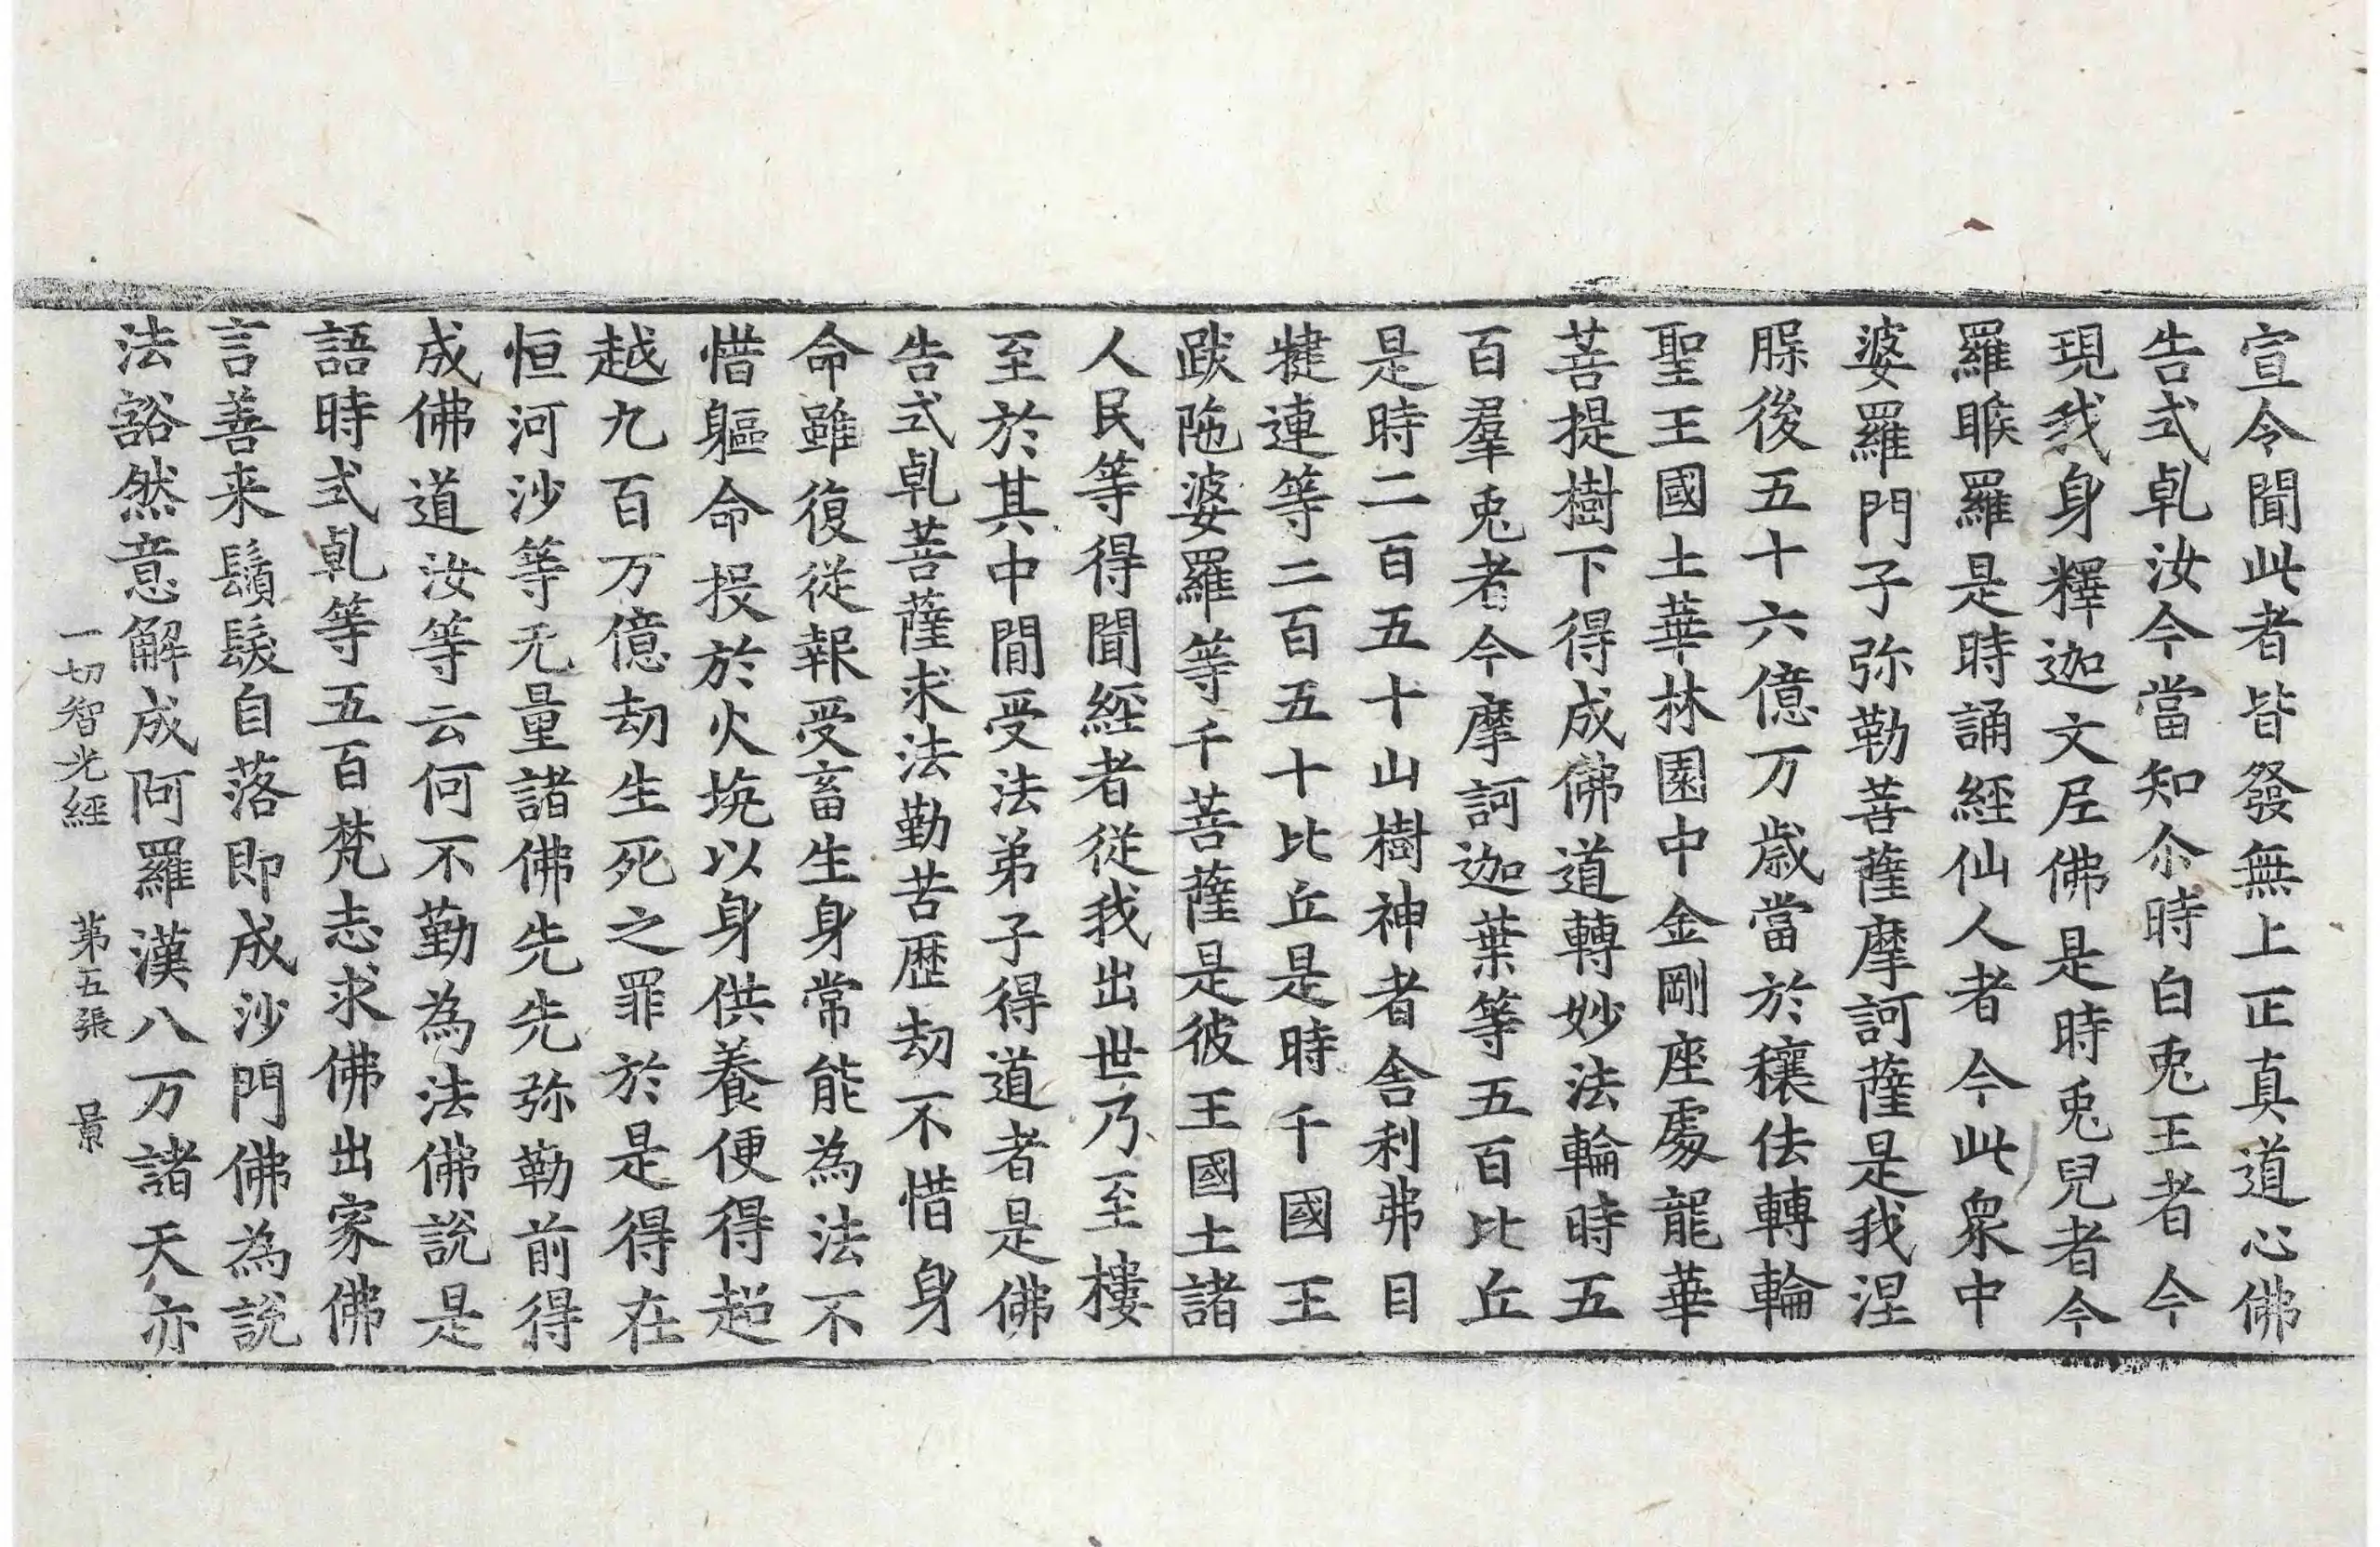 宣令聞此者皆發無上正真道心佛
告式乹汝今當知尒時白兎王者今
現我身釋迦文尼佛是時兎兒者今
羅睺羅是時誦經仙人者今此衆中
婆羅門子弥勒菩薩摩訶薩是我涅
䐗後五十六億万歲當於穰佉轉輪
聖王國土華林園中金剛座處龍華
菩提樹下得成佛道轉妙法輪時五
百羣兎者今摩訶迦葉等五百比丘
是時二百五十山樹神者舍利弗目
揵連等二百五十比丘是時千國王
跋陁婆羅等千菩薩是彼王國土諸
人民等得聞經者從我出世乃至樓
至於其中間受法弟子得道者是佛
告式乹菩薩求法勤苦歷劫不惜身
命雖復從報受畜生身常能為法不
惜軀命投於火坑以身供養便得超
越九百万億劫生死之罪於是得在
恒河沙等无量諸佛先先弥勒前得
成佛道汝等云何不勤為法佛說是
語時式乹等五百梵志求佛出家佛
言善来鬚髮自落即成沙門佛為說
法豁然意解成阿羅漢八万諸天亦
一切智光經 第五張 景